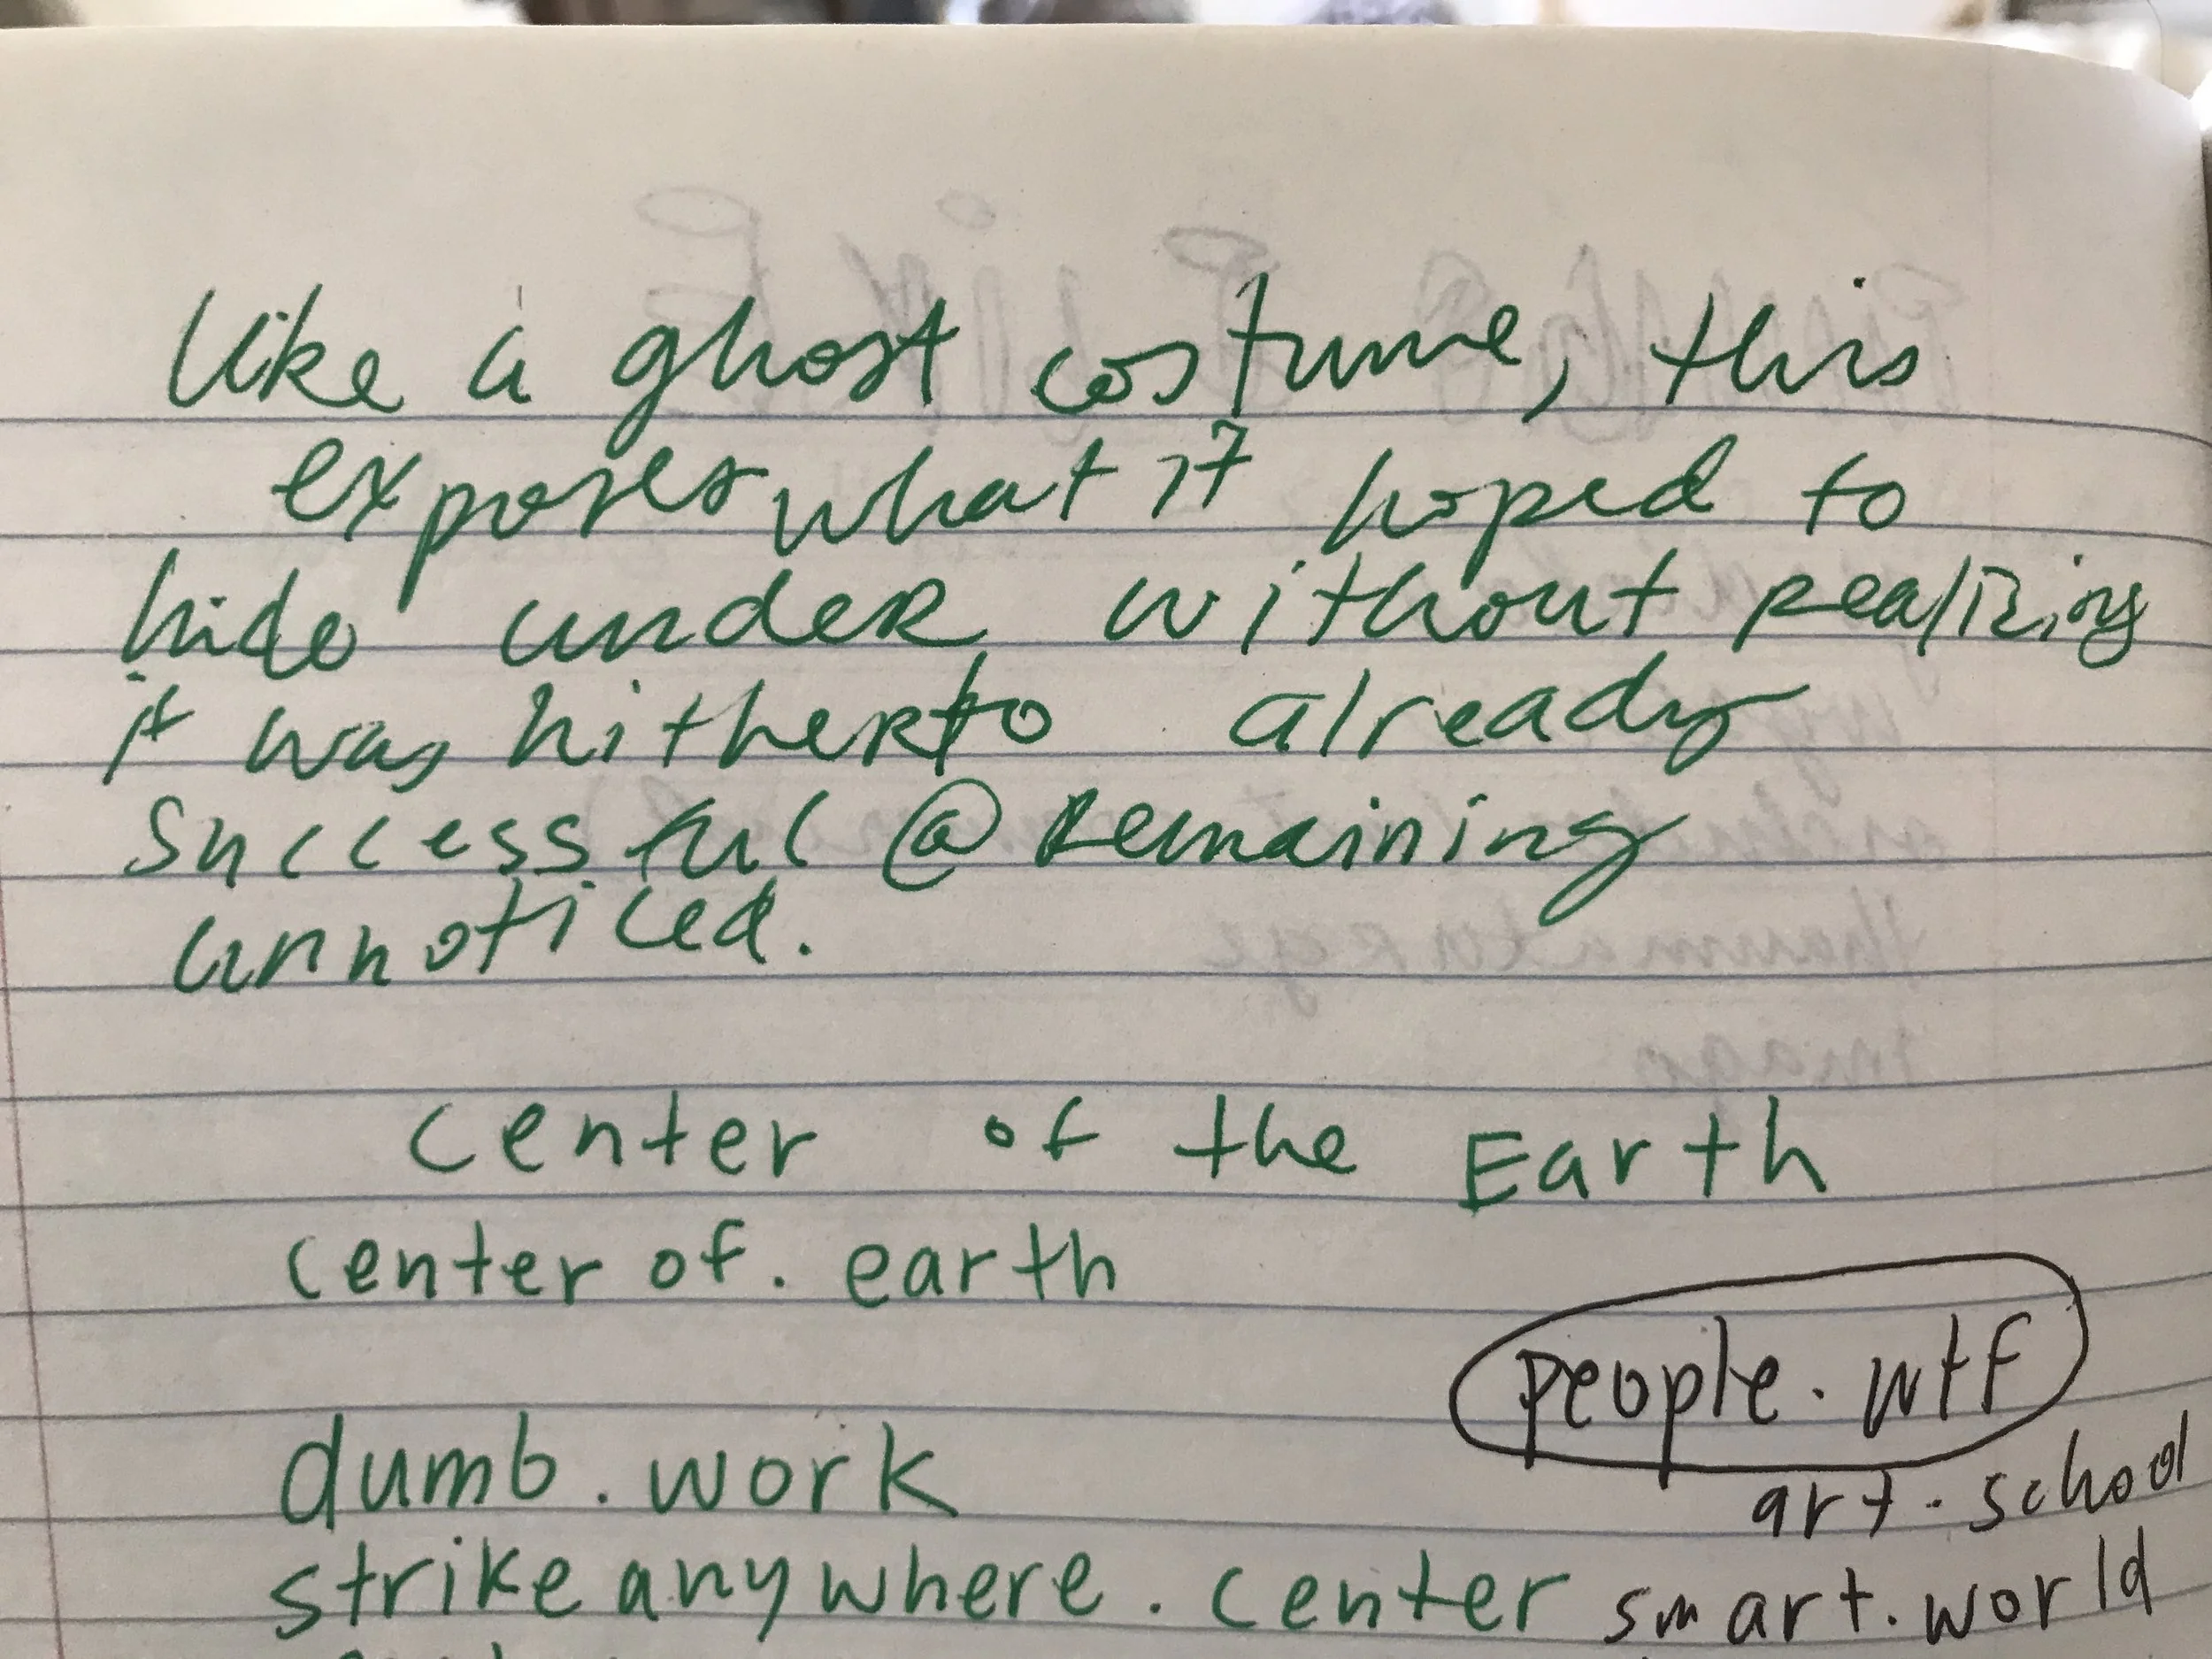 like a ghost costume, this
exposes what it hoped to
hide under without realizing
it was hitherto already
successful @ remaining
unnoticed.
center of the Earth
centerof.earth
people.wtf
dumb.work
art.school
strikeanywhere.center
smart.world